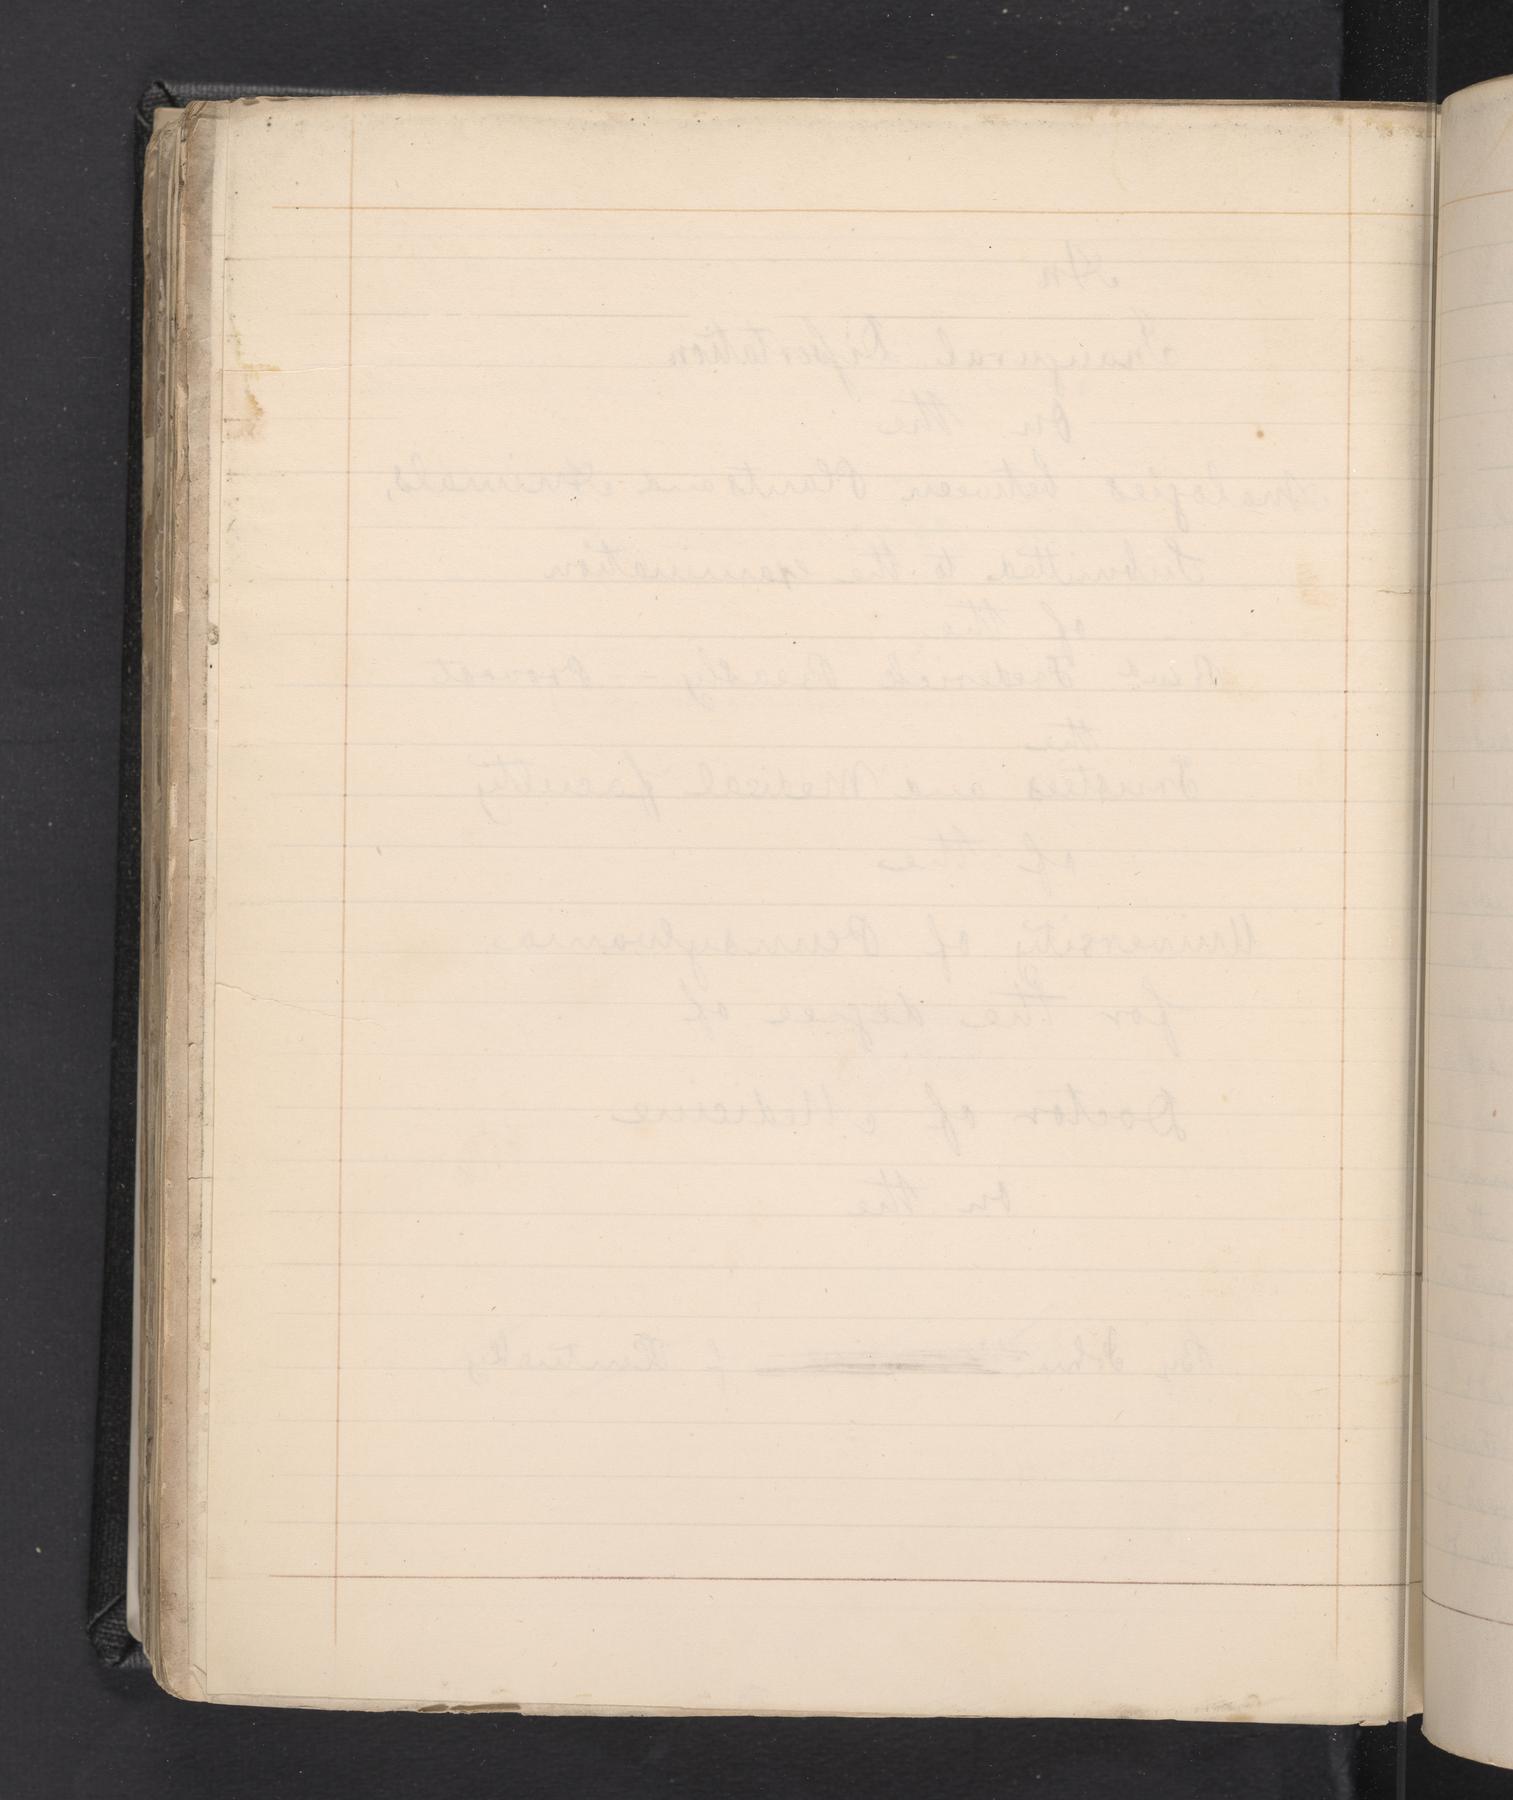 An
Inaugural Dissertation
On the
Analogies between Plants and Animals,
Submitted to the examination
of the
Revd. Frederick Beasly – Provost
the
Trustees and Medical faculty
of the
University of Pennsylvania
for the degree of
Doctor of Medicine
on the
By John of Kentucky